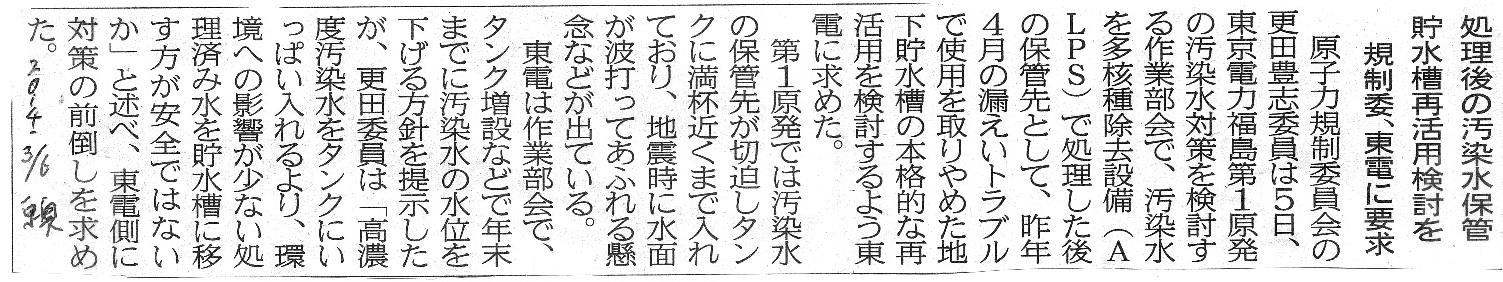 処理後の汚染水保管
貯水槽再活用検討を
規制委、東電に要求
原子力規制委員会の
更田豊志委員は５日、
東京電力福島第１原発
の汚染水対策を検討す
る作業部会で、汚染水
を多核種除去設備（Ａ
ＬＰＳ）で処理した後
の保管先として、昨年
４月の漏えいトラブル
で使用を取りやめた地
下貯水槽の本格的な再
活用を検討するよう東
電に求めた。
第１原発では汚染水
の保管先が切迫しタン
クに満杯近くまで入れ
ており、地震時に水面
が波打ってあふれる懸
念などが出ている。
東電は作業部会で、
タンク増設などで年末
までに汚染水の水位を
下げる方針を提示した
が、更田委員は「高濃
度汚染水をタンクにい
っぱい入れるより、環
境への影響が少ない処
理済み水を貯水槽に移
す方が安全ではない
か」と述べ、東電側に
対策の前倒しを求め
た。
2014 3/6